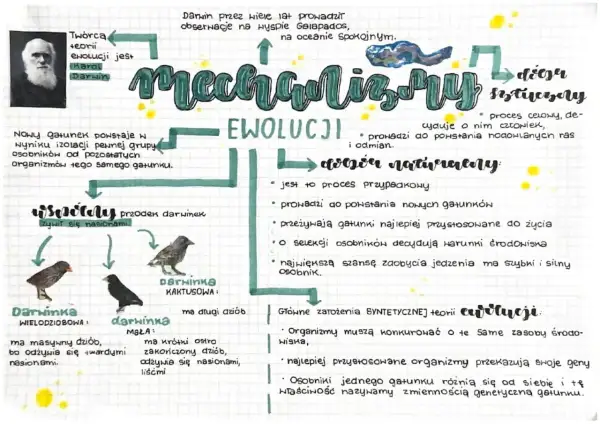 Darwin przez wiele lat prowadził
obserwacje na wyspie Galapagos,
na oceanie Spokojnym.
Twórcą
teorii
ewolucji jest
Karol
Darwin
mechanizmy
EWOLUCJI
dobór
sztuczny
• proces celowy, de-
cyduje o nim człowiek,
• prowadzi do powstania hodowlanych ras
i odmian.
Nowy gatunek powstaje w
wyniku izolacji pewnej grupy
osobników od pozostałych
organizmów tego samego gatunku.
dobór naturalny:
• jest to proces przypadkowy
• prowadzi do powstania nowych gatunków
• przeżywają gatunki najlepiej przystosowane do życia
• o selekcji osobników decydują warunki środowiska
• największą szansę zdobycia jedzenia ma szybki i silny
osobnik.
wspólny przodek darwinek
żywił się nasionami
Darwinka
WIELODZIOBOWA:
ma masywny dziób,
bo odżywia się twardymi
nasionami.
darwinka
MAŁA:
ma krótki ostro
zakończony dziób,
odżywia się nasionami,
liśćmi
Darwinka
KAKTUSOWA:
ma długi dziób
Główne założenia SYNTETYCZNEJ teorii ewolucji:
• Organizmy muszą konkurować o te same zasoby środo-
wiska,
• najlepiej przystosowane organizmy przekazują swoje geny
• Osobniki jednego gatunku różnią się od siebie i tę
właściwość nazywamy zmiennością genetyczną gatunku.